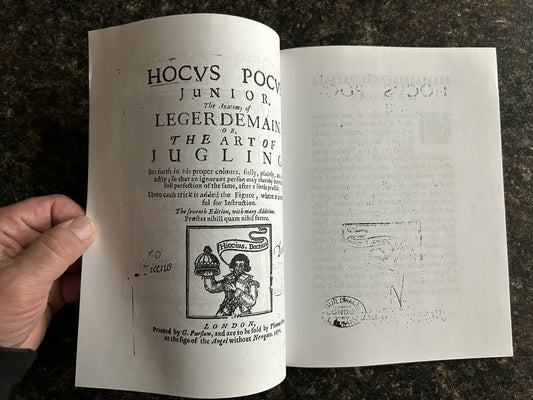 HOCVS POCV
JUNIOR,
The Anatomy of
LEGERDEMAIN
OR,
THE ART OF
JUGLING
Set forth in his proper colours, fully, plainly, and
actly; so that an ignorant person may thereby
full perfection of the same, after a little practise.
Unto each trick is added the Figure, where it is
ful for Instruction.
The seventh Edition, with many Additions.
Præstat nihili quam nihil facere.
Hiccius. Doctius
Hiccius
LONDON,
Printed by G. Purslow, and are to be sold by Thomas
at the sign of the Angel without Newgate.
GUILDHALL
LONDON